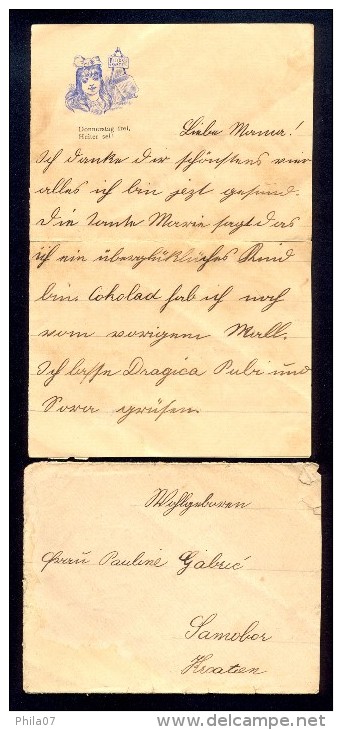 Donnerstag frei,
Heiter sei!
Liebe Mama!
Ich danke dir schönstens vier
alles ich bin jezt gesund.
Die tante Marie sagt das
ich ein überglükliches Kind
bin. Cokolad hab ich noch
vom vorigem Mall.
Ich lasse Dragica Pubi und
Sora grüsen.
Wohlgeboren
Frau Pauline Gabrić
Samobor
Kroatien
Phila07
delcampe.net